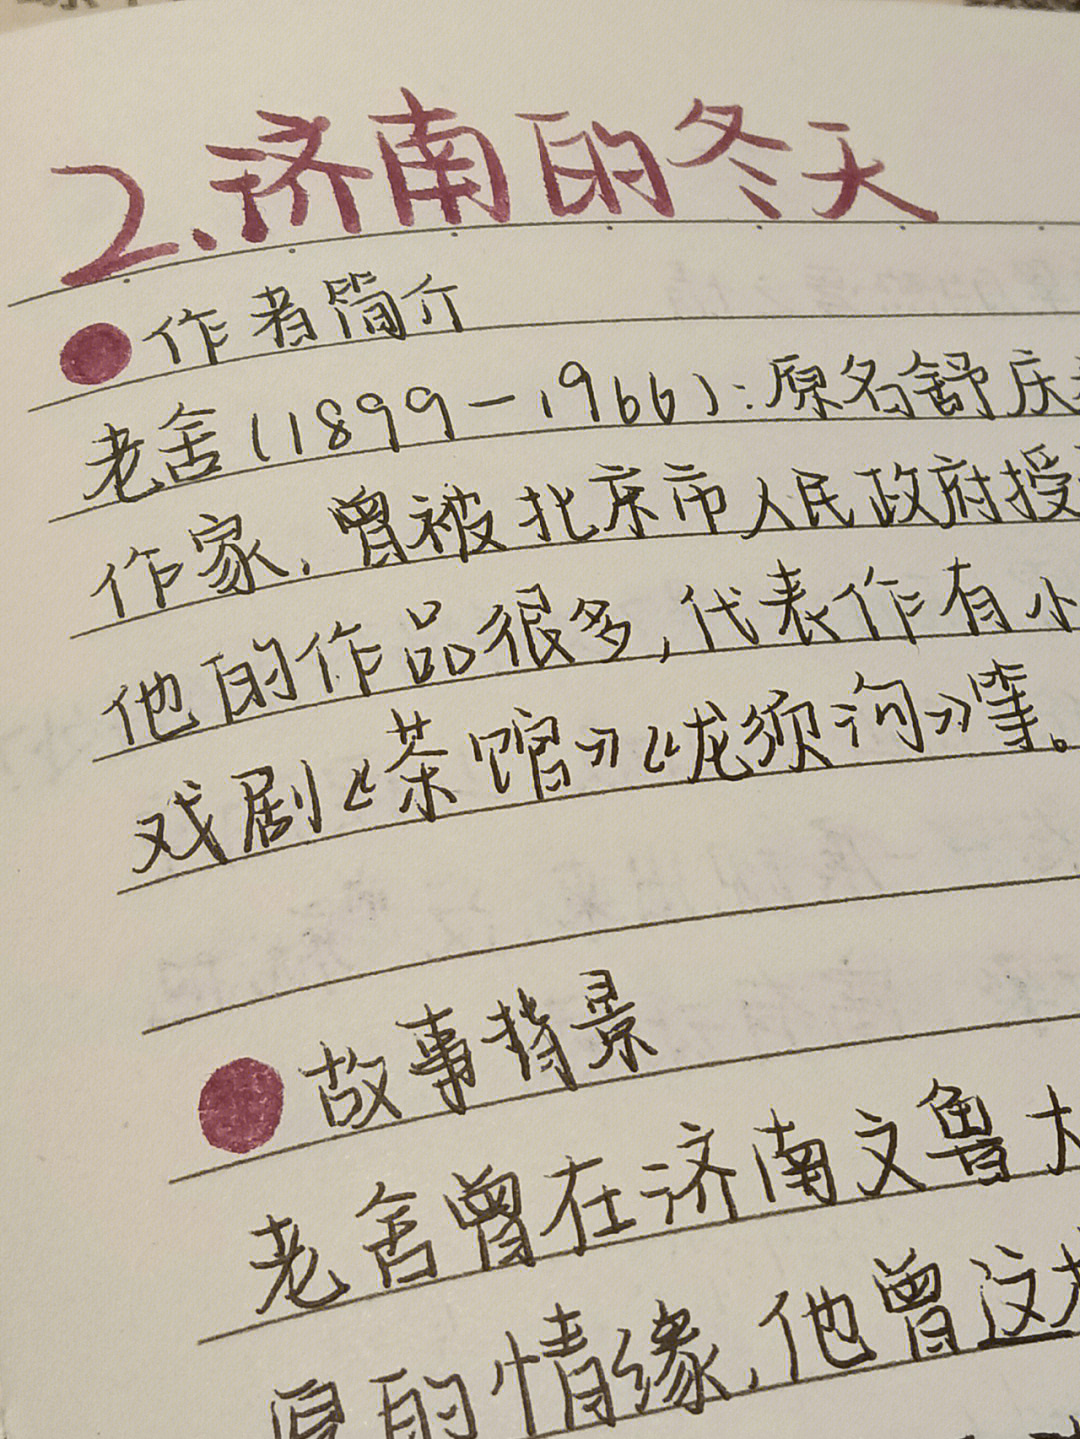 2.济南的冬天
作者简介
老舍(1899-1966):原名舒庆
作家,曾被北京市人民政府授
他的作品很多,代表作有小
戏剧《茶馆》《龙须沟》等。
故事背景
老舍曾在济南文鲁大
厚的情缘,他曾这